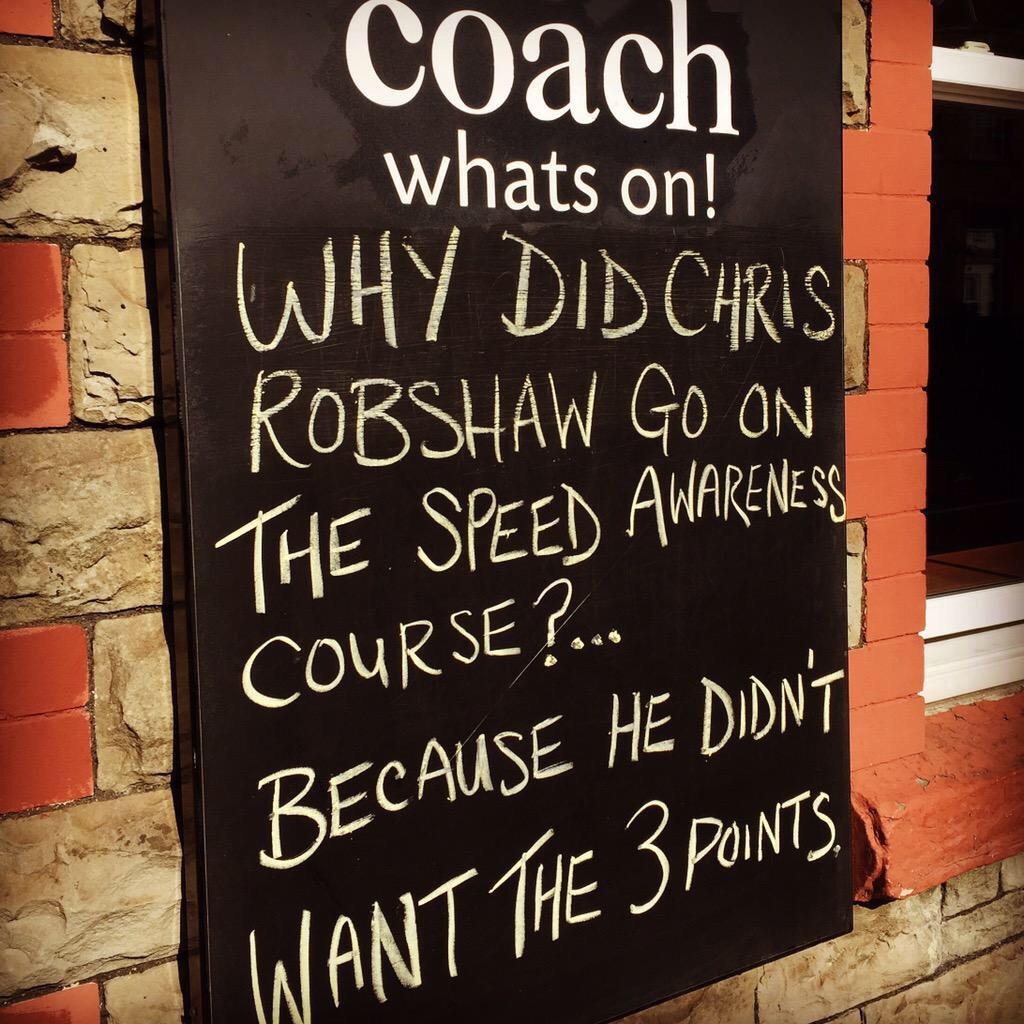 coach
whats on!
WHY DID CHRIS
ROBSHAW GO ON
THE SPEED AWARENESS
COURSE?...
BECAUSE HE DIDN'T
WANT THE 3 POINTS.